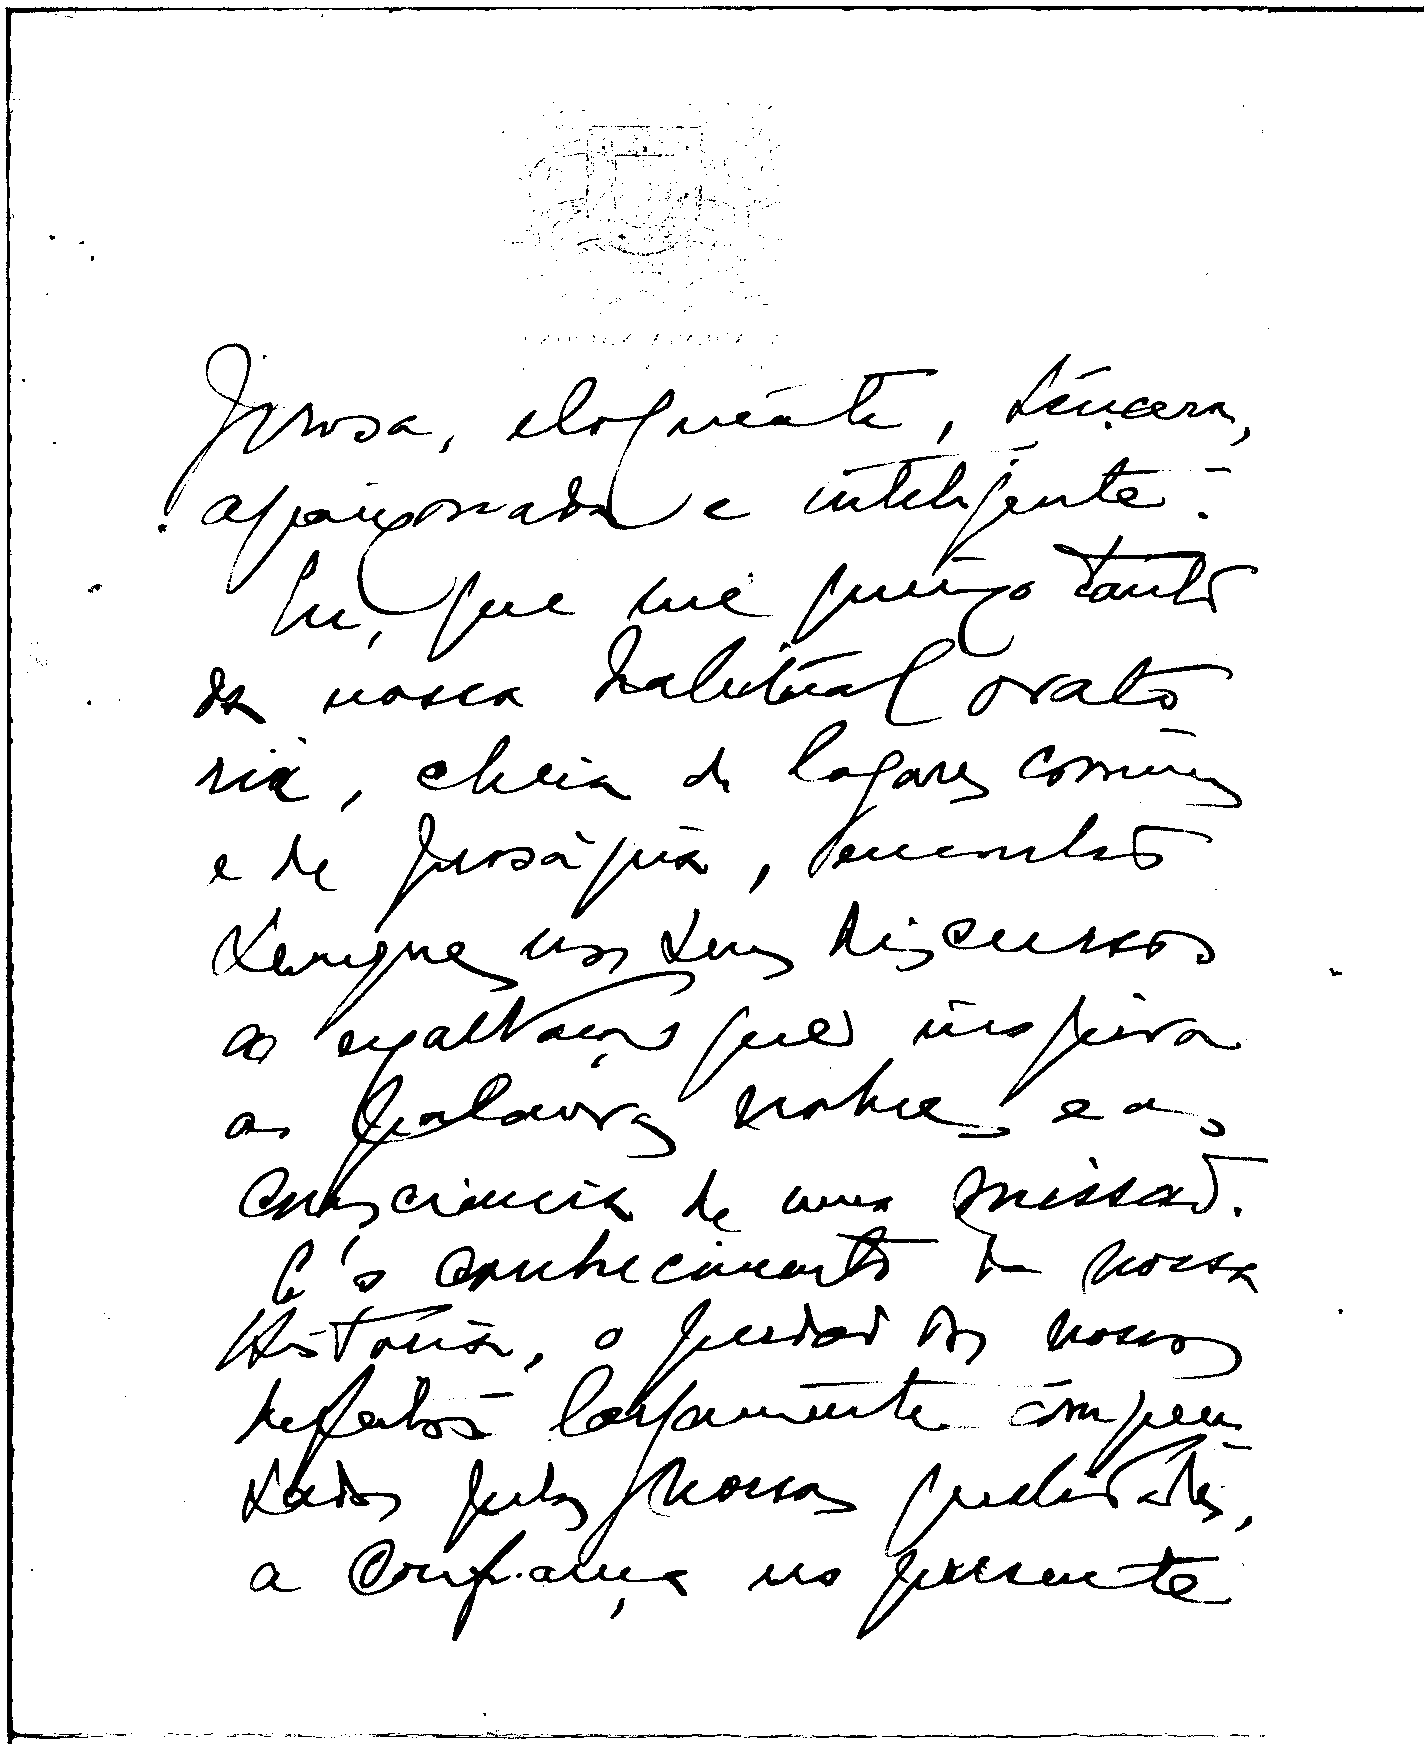 prosa, eloquente, sincera,
apaixonada e inteligente.
Eu, que me queixo tanto
da nossa habitual orato
ria, cheia de logares comuns
e de prosápia, encontro
sempre nos seus discursos
a exaltação que inspira
as palavras nobres e a
consciencia de uma missão.
É o conhecimento da nossa
Historia, o perdão dos nossos
defeitos largamente compen
sados pelas nossas qualidades,
a confiança no presente